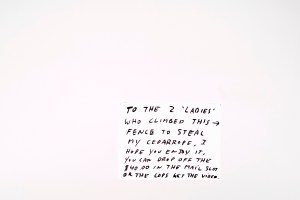 TO THE 2 "LADIES"
WHO CLIMBED THIS →
FENCE TO STEAL
MY CEDARROPE, I
HOPE YOU ENJOY IT.
YOU CAN DROP OFF THE
$40.00 IN THE MAIL SLOT
OR THE COPS GET THE VIDEO.